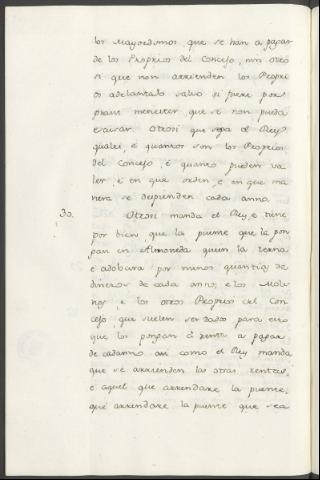 los Mayordomos que se han a pagar
de los Propios del Concejo, nin otro
si que non arrienden los Propri
os adelantado salvo si fuere por
grant menester que se non pueda
escusar. Otrosi que sepa el Rey
quales, é quantos son los Proprios
del Concejo, é quanto pueden va
ler, é en que orden, é en que ma
nera se despienden cada anno.
30. Otrosi manda el Rey, e tiene
por bien, que la puente que la pon
gan en Almoneda quien la terna
é adobara por menos quantia de
dineros de cada anno, e los Moli
nos, e los otros Propios del Con
cejo, que suelen ser dados para esto
que los pongan á renta a pagar
de cadanno asi como el Rey manda
que se arrienden las otras rentas,
e aquel que arrendare la puente,
que arrendare la puente que sea